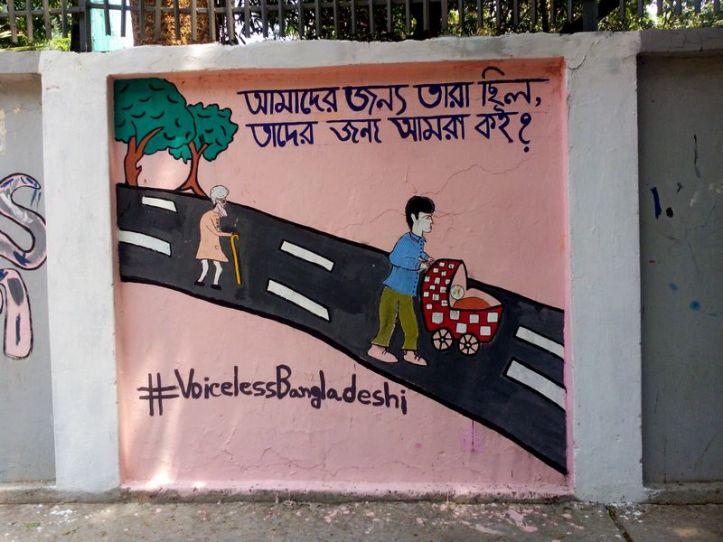 আমাদের জন্য তারা ছিল,
তাদের জন্য আমরা কই?
#VoicelessBangladeshi